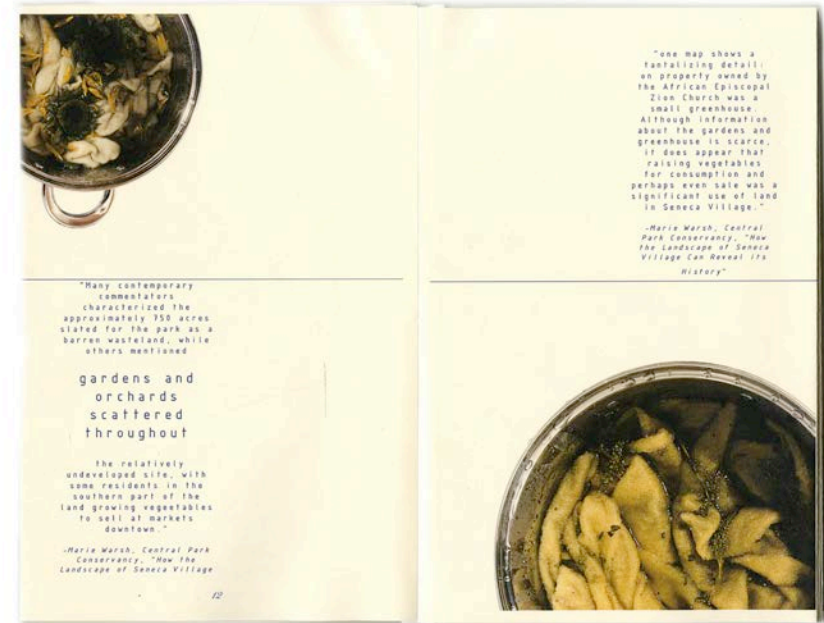 "Many contemporary
commentators
characterized the
approximately 750 acres
slated for the park as a
barren wasteland, while
others mentioned
gardens and
orchards
scattered
throughout
the relatively
undeveloped site, with
some residents in the
southern part of the
land growing vegeetables
to sell at markets
downtown."
-Marie Warsh, Central Park
Conservancy, "How the
Landscape of Seneca Village
12
"one map shows a
tantalizing detail:
on property owned by
the African Episcopal
Zion Church was a
small greenhouse.
Although information
about the gardens and
greenhouse is scarce,
it does appear that
raising vegetables
for consumption and
perhaps even sale was a
significant use of land
in Seneca Village."
-Marie Warsh, Central
Park Conservancy, "How
the Landscape of Seneca
Village Can Reveal its
History"